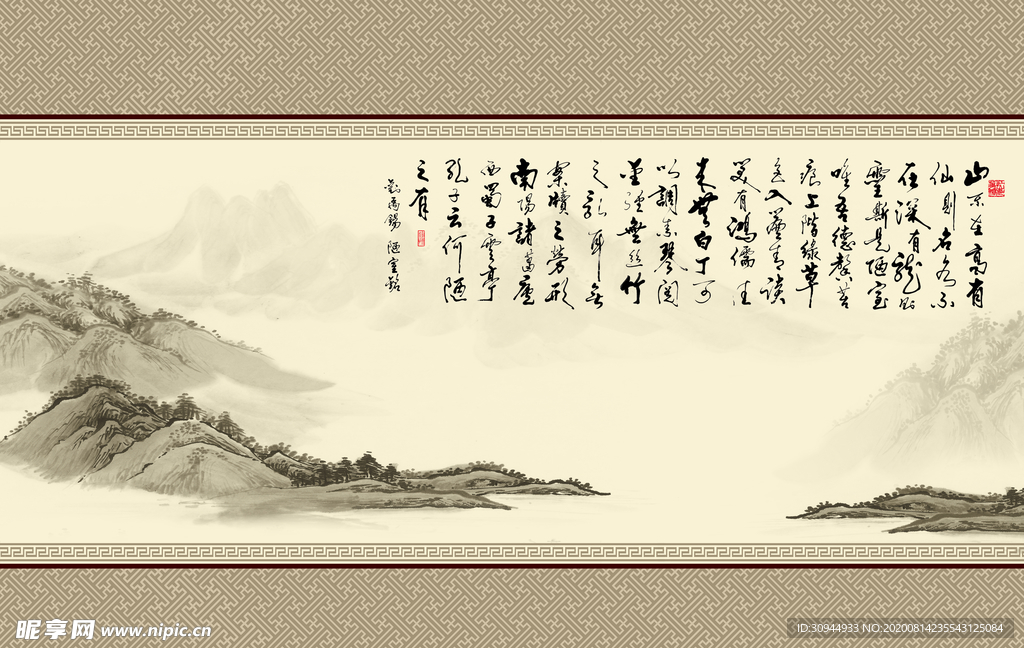 山不在高有
仙則名水不
在深有龍則
靈斯是陋室
唯吾德馨苔
痕上階綠草
色入簾青談
笑有鴻儒往
來無白丁可
以調素琴閱
金經無絲竹
之亂耳無
案牘之勞形
南陽諸葛廬
西蜀子雲亭
孔子云何陋
之有
劉禹錫 陋室銘
昵享网 www.nipic.cn
ID:30944933 NO:20200814235543125084